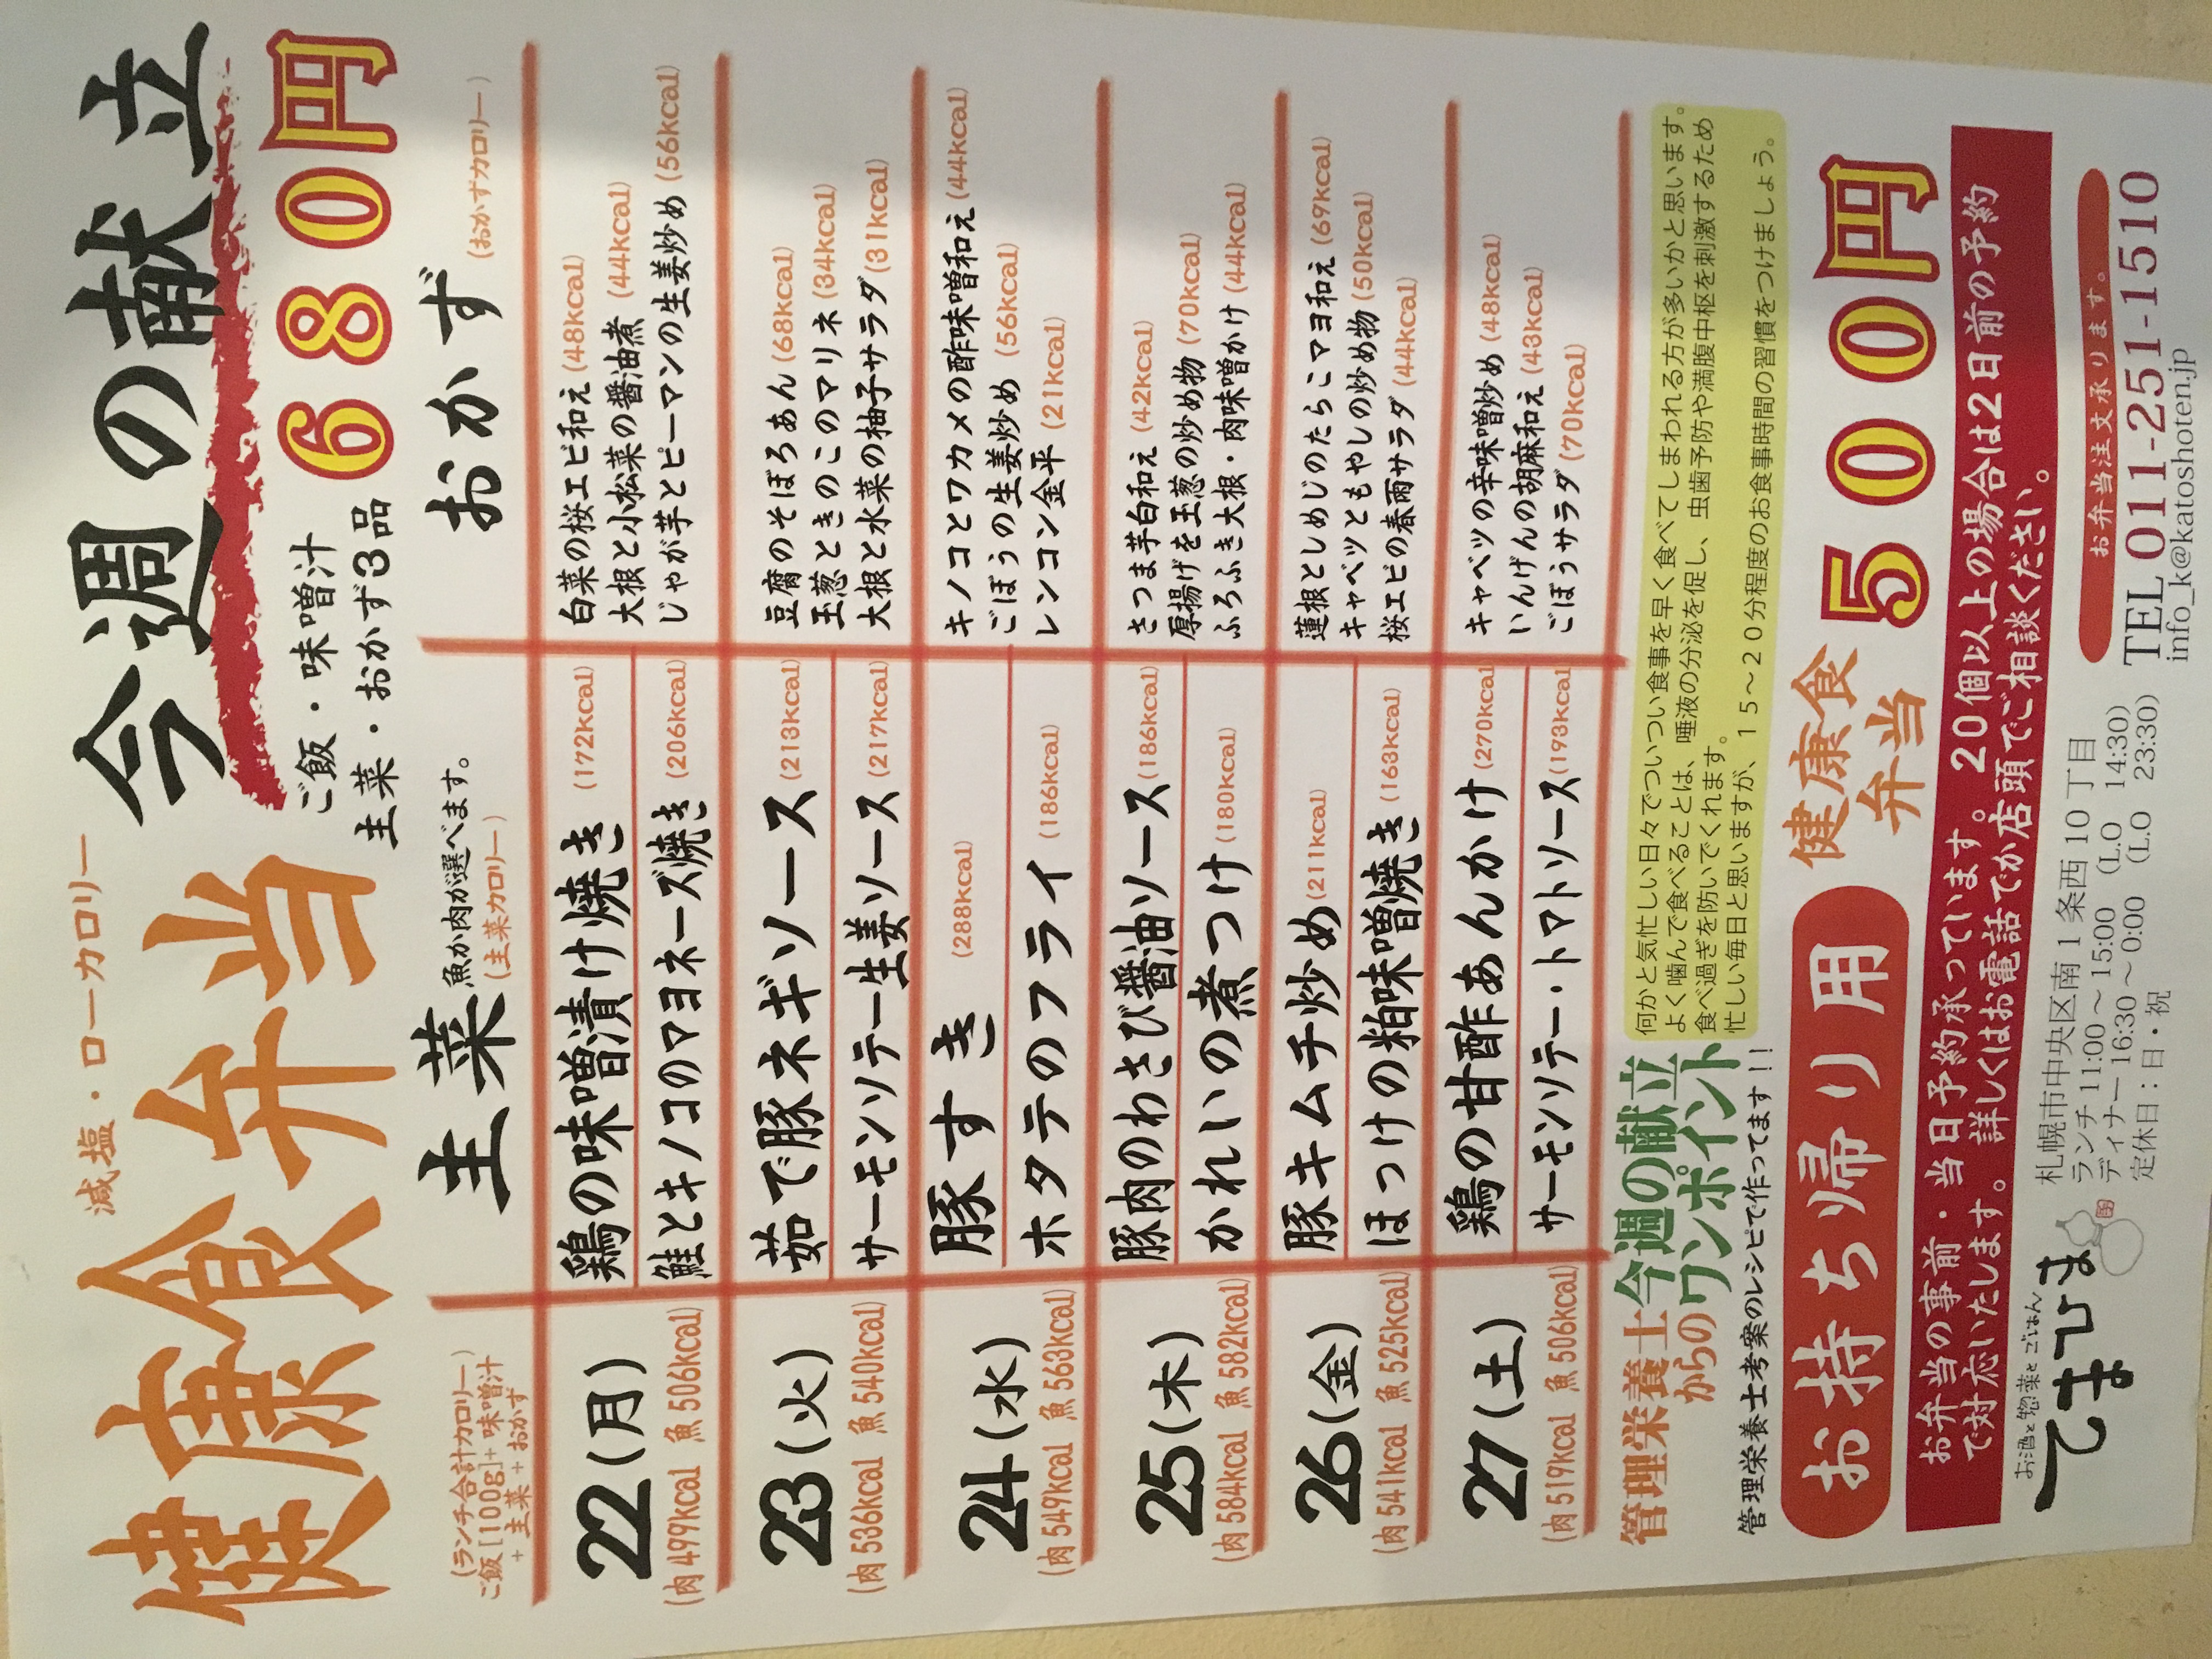 減塩・ローカロリー
健康食弁当
今週の献立
ご飯・味噌汁
主菜・おかず3品
680円
(ランチ合計カロリー)
ご飯[100g]+味噌汁
+主菜+おかず
主菜
魚か肉が選べます。
(主菜カロリー)
おかず
(おかずカロリー)
22(月)
(肉 499kcal 魚 506kcal)
鶏の味噌漬け焼き (172kcal)
鮭とキノコのマヨネーズ焼き (206kcal)
白菜の桜エビ和え (48kcal)
大根と小松菜の醤油煮 (44kcal)
じゃが芋とピーマンの生姜炒め (56kcal)
23(火)
(肉 536kcal 魚 540kcal)
茹で豚ネギソース (213kcal)
サーモンソテー生姜ソース (217kcal)
豆腐のそぼろあん (68kcal)
玉葱ときのこのマリネ (34kcal)
大根と水菜の柚子サラダ (31kcal)
24(水)
(肉 549kcal 魚 563kcal)
豚すき (288kcal)
ホタテのフライ (186kcal)
キノコとワカメの酢味噌和え (44kcal)
ごぼうの生姜炒め (56kcal)
レンコン金平 (21kcal)
25(木)
(肉 584kcal 魚 582kcal)
豚肉のわさび醤油ソース (186kcal)
かれいの煮つけ (180kcal)
さつま芋白和え (42kcal)
厚揚げを玉葱の炒め物 (70kcal)
ふろふき大根・肉味噌かけ (44kcal)
26(金)
(肉 541kcal 魚 525kcal)
豚キムチ炒め (211kcal)
ほっけの粕味噌焼き (163kcal)
蓮根としめじのたらこマヨ和え (69kcal)
キャベツともやしの炒め物 (50kcal)
桜エビの春雨サラダ (44kcal)
27(土)
(肉 519kcal 魚 506kcal)
鶏の甘酢あんかけ (270kcal)
サーモンソテー・トマトソース (193kcal)
キャベツの辛味噌炒め (48kcal)
いんげんの胡麻和え (43kcal)
ごぼうサラダ (70kcal)
管理栄養士からの
今週の献立ワンポイント
管理栄養士考案のレシピで作ってます!!
何かと気忙しい日々でついつい食事を早く食べてしまわれる方が多いかと思います。
よく噛んで食べることは、唾液の分泌を促し、虫歯予防や満腹中枢を刺激するため
食べ過ぎを防いでくれます。
忙しい毎日と思いますが、15～20分程度のお食事時間の習慣をつけましょう。
お持ち帰り用
健康食弁当
500円
お弁当の事前・当日予約承っています。20個以上の場合は2日前の予約
で対応いたします。詳しくはお電話でか店頭でご相談ください。
お酒と惣菜とごはん
てまひま
札幌市中央区南1条西10丁目
ランチ 11:00～15:00 (L.O 14:30)
ディナー 16:30～0:00 (L.O 23:30)
定休日：日・祝
お弁当注文承ります。
TEL 011-251-1510
info_k@katoshoten.jp